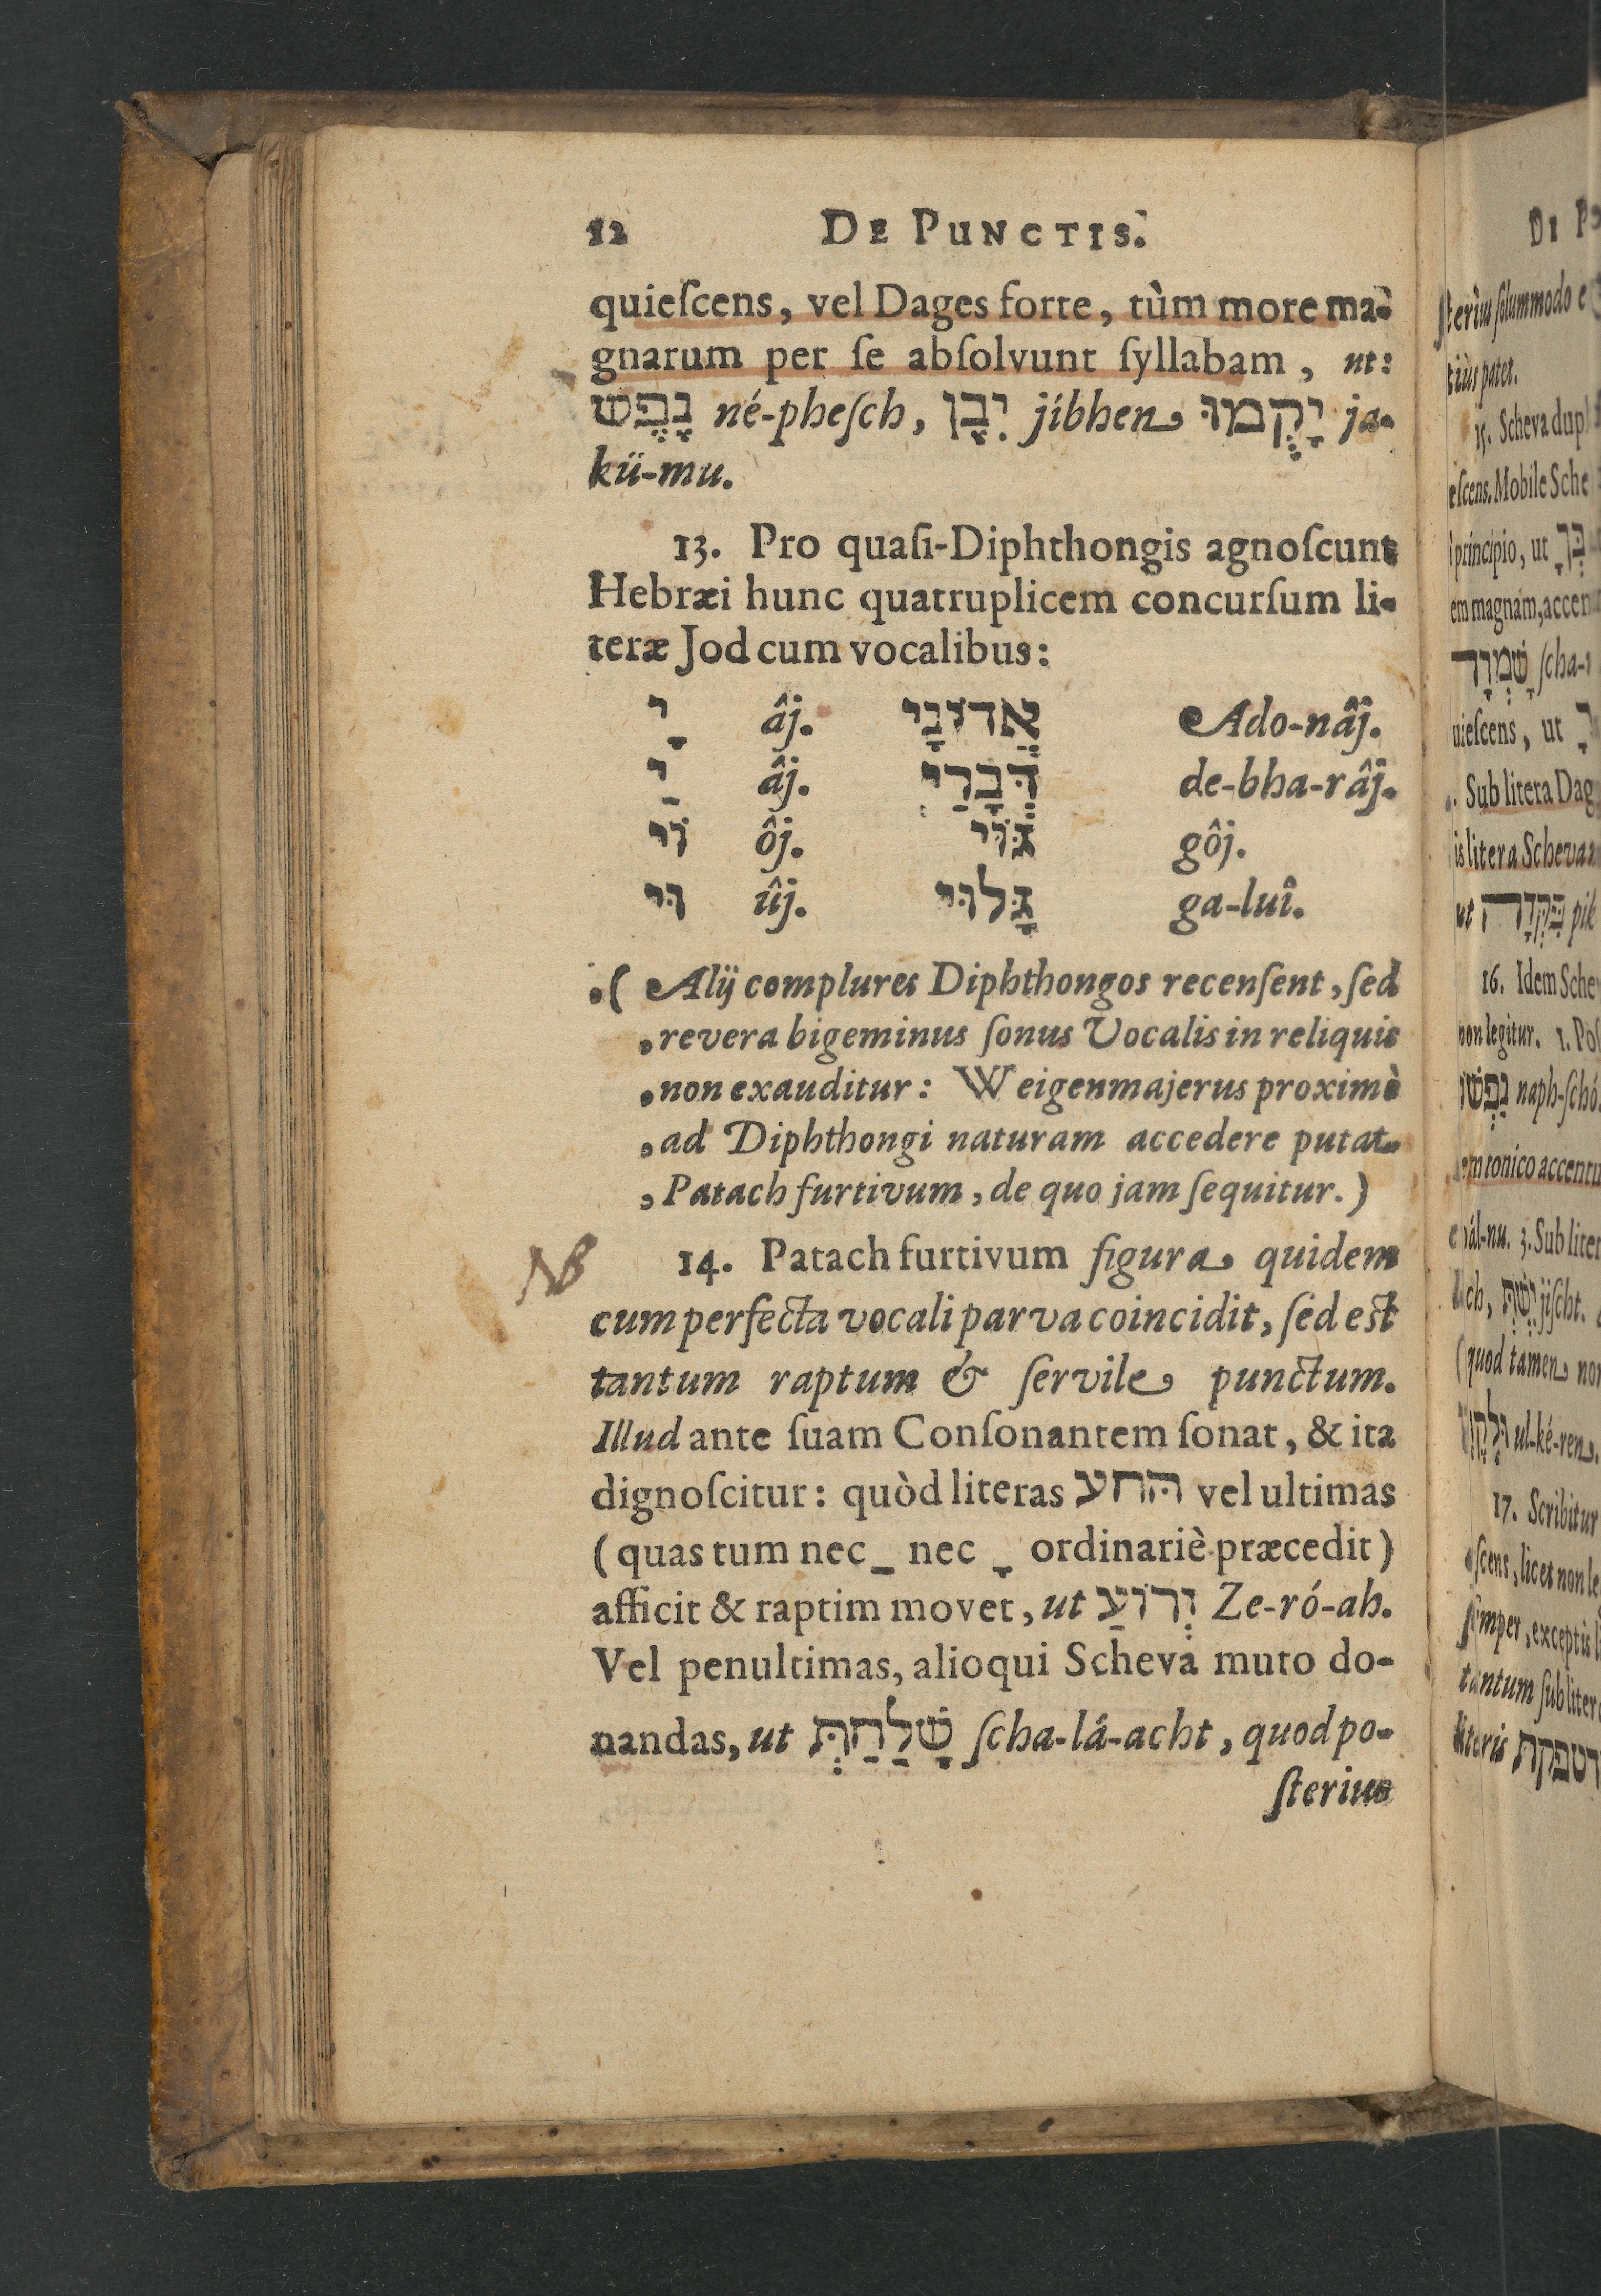 12 DE PUNCTIS.
quieſcens, vel Dages forte, tùm more ma-
gnarum per ſe abſolvunt ſyllabam, ut:
נֶפֶש né-pheſch, יִבֶן jíbhen יָקֻמוּ ja-
kü-mu.
13. Pro quaſi-Diphthongis agnoſcunt
Hebræi hunc quatruplicem concurſum li-
teræ Jod cum vocalibus:
יָ âj. אֲדֹנָי Ado-nâj.
יַ âj. דְּבָרַי de-bha-râj.
וֹי ôj. גּוֹי gôj.
וּי ûj. גָּלוּי ga-luî.
( Alij complures Diphthongos recenſent, ſed
revera bigeminus ſonus Vocalis in reliquis
non exauditur: Weigenmajerus proximè
ad Diphthongi naturam accedere putat
Patach furtivum, de quo jam ſequitur.)
NB 14. Patach furtivum figura quidem
cum perfecta vocali parva coincidit, ſed est
tantum raptum & ſervile punctum.
Illud ante ſuam Conſonantem ſonat, & ita
dignoſcitur: quòd literas הּחע vel ultimas
(quas tum nec ַ nec ָ ordinariè præcedit)
afficit & raptim movet, ut זְרוֹעַ Ze-ró-ah.
Vel penultimas, alioqui Scheva muto do-
nandas, ut שָׁלַחַתְּ ſcha-lá-acht, quod po-
ſterius
DE P
ſteriùs ſolummodo e
tiùs patet.
15. Scheva dupl
eſcens. Mobile Sche
principio, ut
em magnam, accen
שָׁמְרָה ſcha-
uieſcens, ut
Sub litera Dag
is litera Scheva
ut פִּקְּדָה pik
16. Idem Sche
non legitur. 1. Poſ
נַפְשׁוֹ naph-ſchó.
m tonico accentu
ál-nu. 3. Sub liter
ch, jiſcht.
(quod tamen non
ul-ké-ren.
17. Scribitur
ſcens, licet non le
ſemper, exceptis l
tantum ſub liter
literis דטפקת